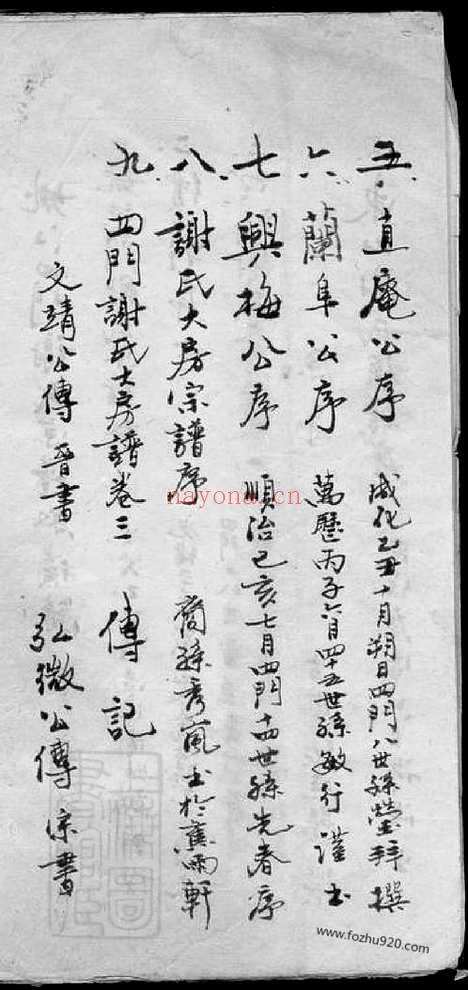 五、直庵公序 成化乙丑十月朔日四門八世孫瑩拜撰
六、蘭阜公序 萬歷丙子六月四十五世孫敏行謹書
七、興梅公序 順治己亥七月四門十四世孫先春序
八、謝氏大房宗譜序 裔孫秀嵐書於蕉雨軒
九、四門謝氏大房譜卷三 傳記
文靖公傳 晉書 弘微公傳 宋書
nayona.cn
www.fozhu920.com